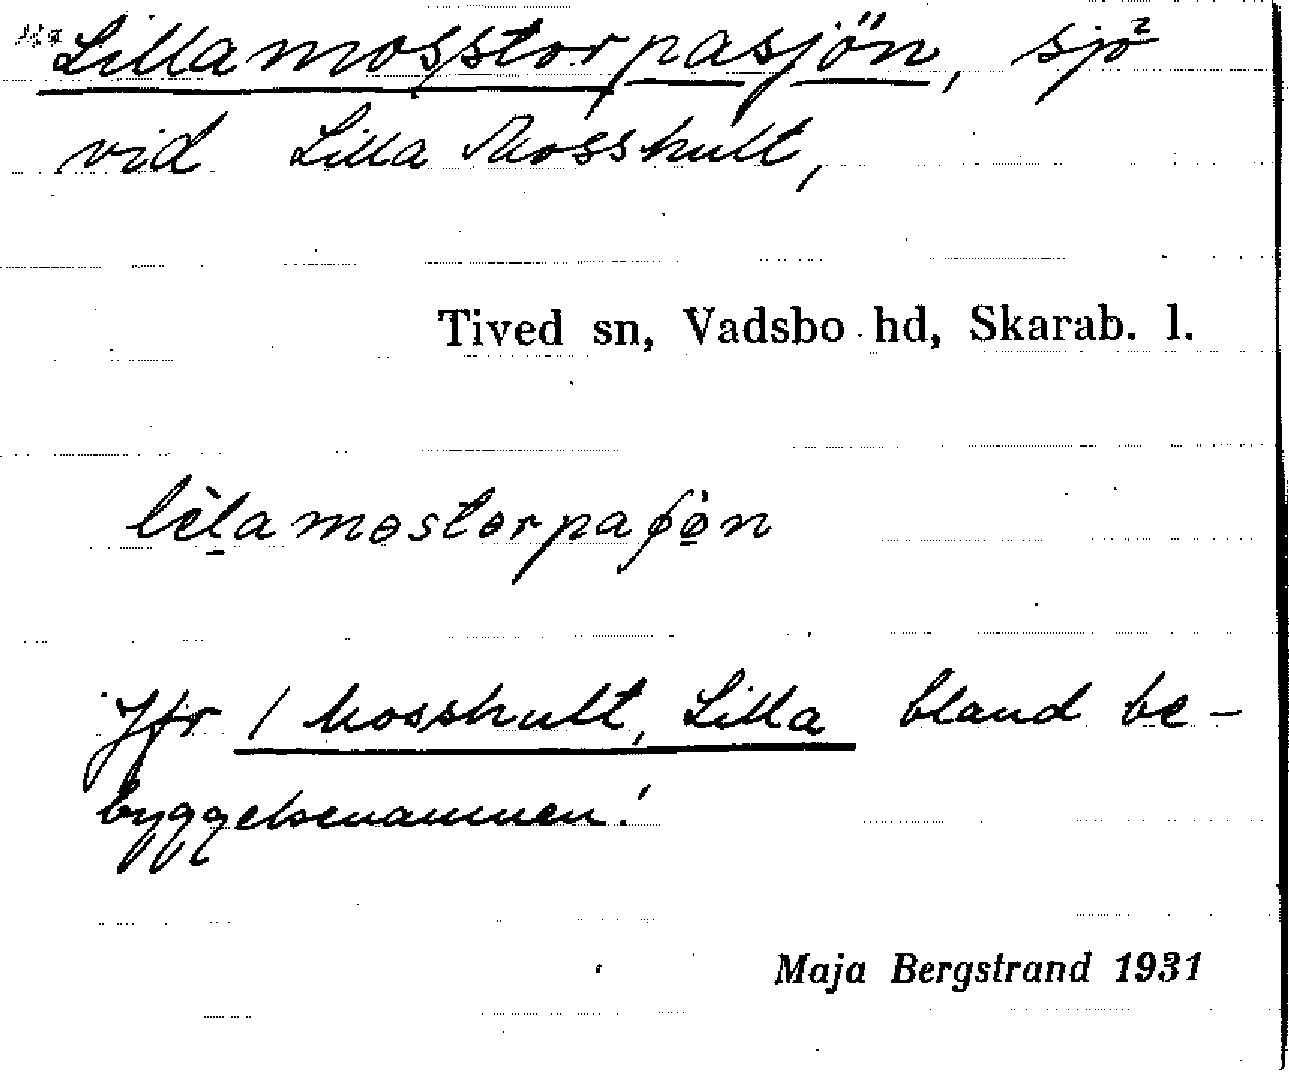 Lillamosstorpasjön, sjö
vid Lilla Mosshult,
Tived sn, Vadsbo hd, Skarab. l.
lèlamostorpaʃøn
Jfr 1 Mosshult, Lilla bland be-
byggelsenamnen!
Maja Bergstrand 1931